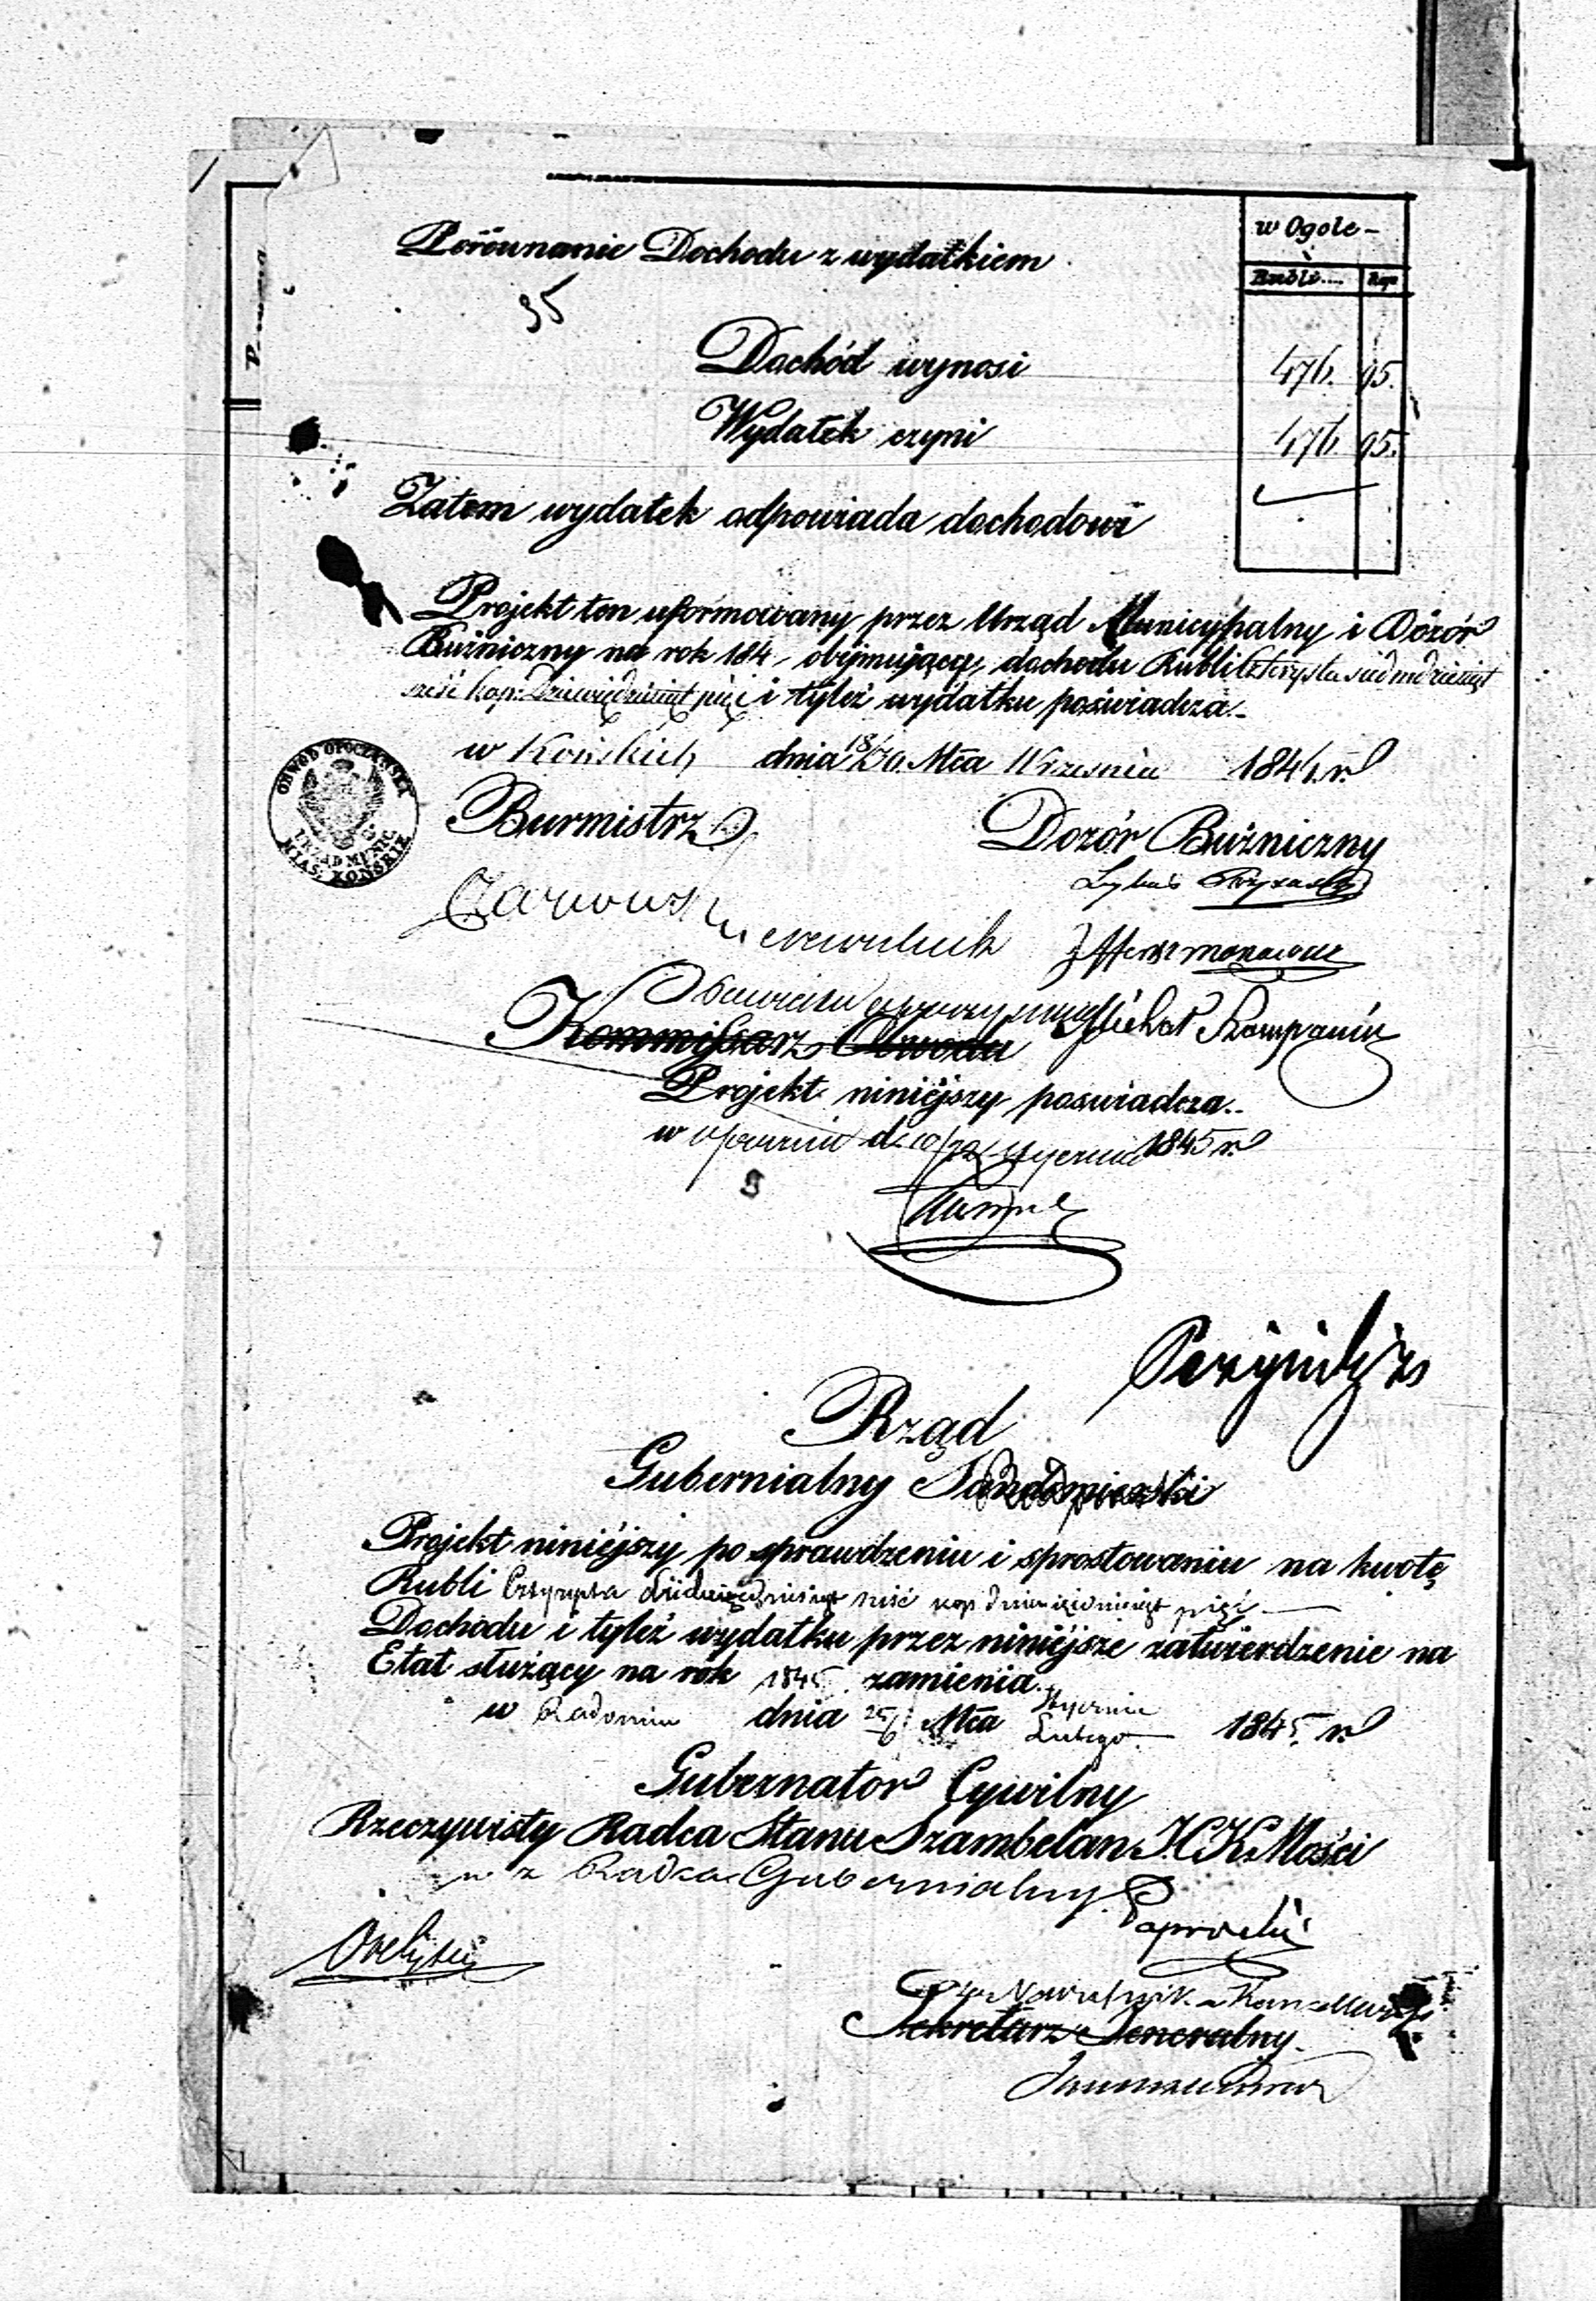 w Ogole -
Porównanie Dochodu z wydatkiem
Ruble.... Kop
95
Dochód wynosi 476. 95.
Wydatek czyni 476. 95.
Zatem wydatek odpowiada dochodowi
Projekt ten uformowany przez Urząd Municypalny i Dozór
Bużniczny na rok 184 obejmujący dochodu Rubli Czterysta siedmdziesiąt
sześć kop. Dziewięćdziesiąt pięć i tyleż wydatku poświadcza.
w Końskich dnia 18/30. Mca Września 1844. r.
OBWÓD OPOCZYŃSKI
URZĄD MUNIC.
MIAS. KOŃSKIE
Burmistrz
Dozór Bużniczny
Michał
Kommissarz Obwodu
Projekt niniejszy poswiadcza..
w Opocznie d. 10/22 Stycznia 1845 r.
Rząd
Gubernialny Sandomierski
Projekt niniejszy po sprawdzeniu i sprostowaniu na kwotę
Rubli Czterysta siedmdziesiąt sześć kop. dziewięćdziesiąt pięć
Dochodu i tyleż wydatku przez niniejsze zatwierdzenie na
Etat służący na rok 1845. zamienia.
w Radomiu dnia 25/6 Mca Stycznia Lutego 1845. r.
Gubernator Cywilny
Rzeczywisty Radca Stanu Szambelan J.C.K. Mości
w z Radca Gubernialny
Paprocki
Naczelnik Kancellaryi
Sekretarz Jeneralny.